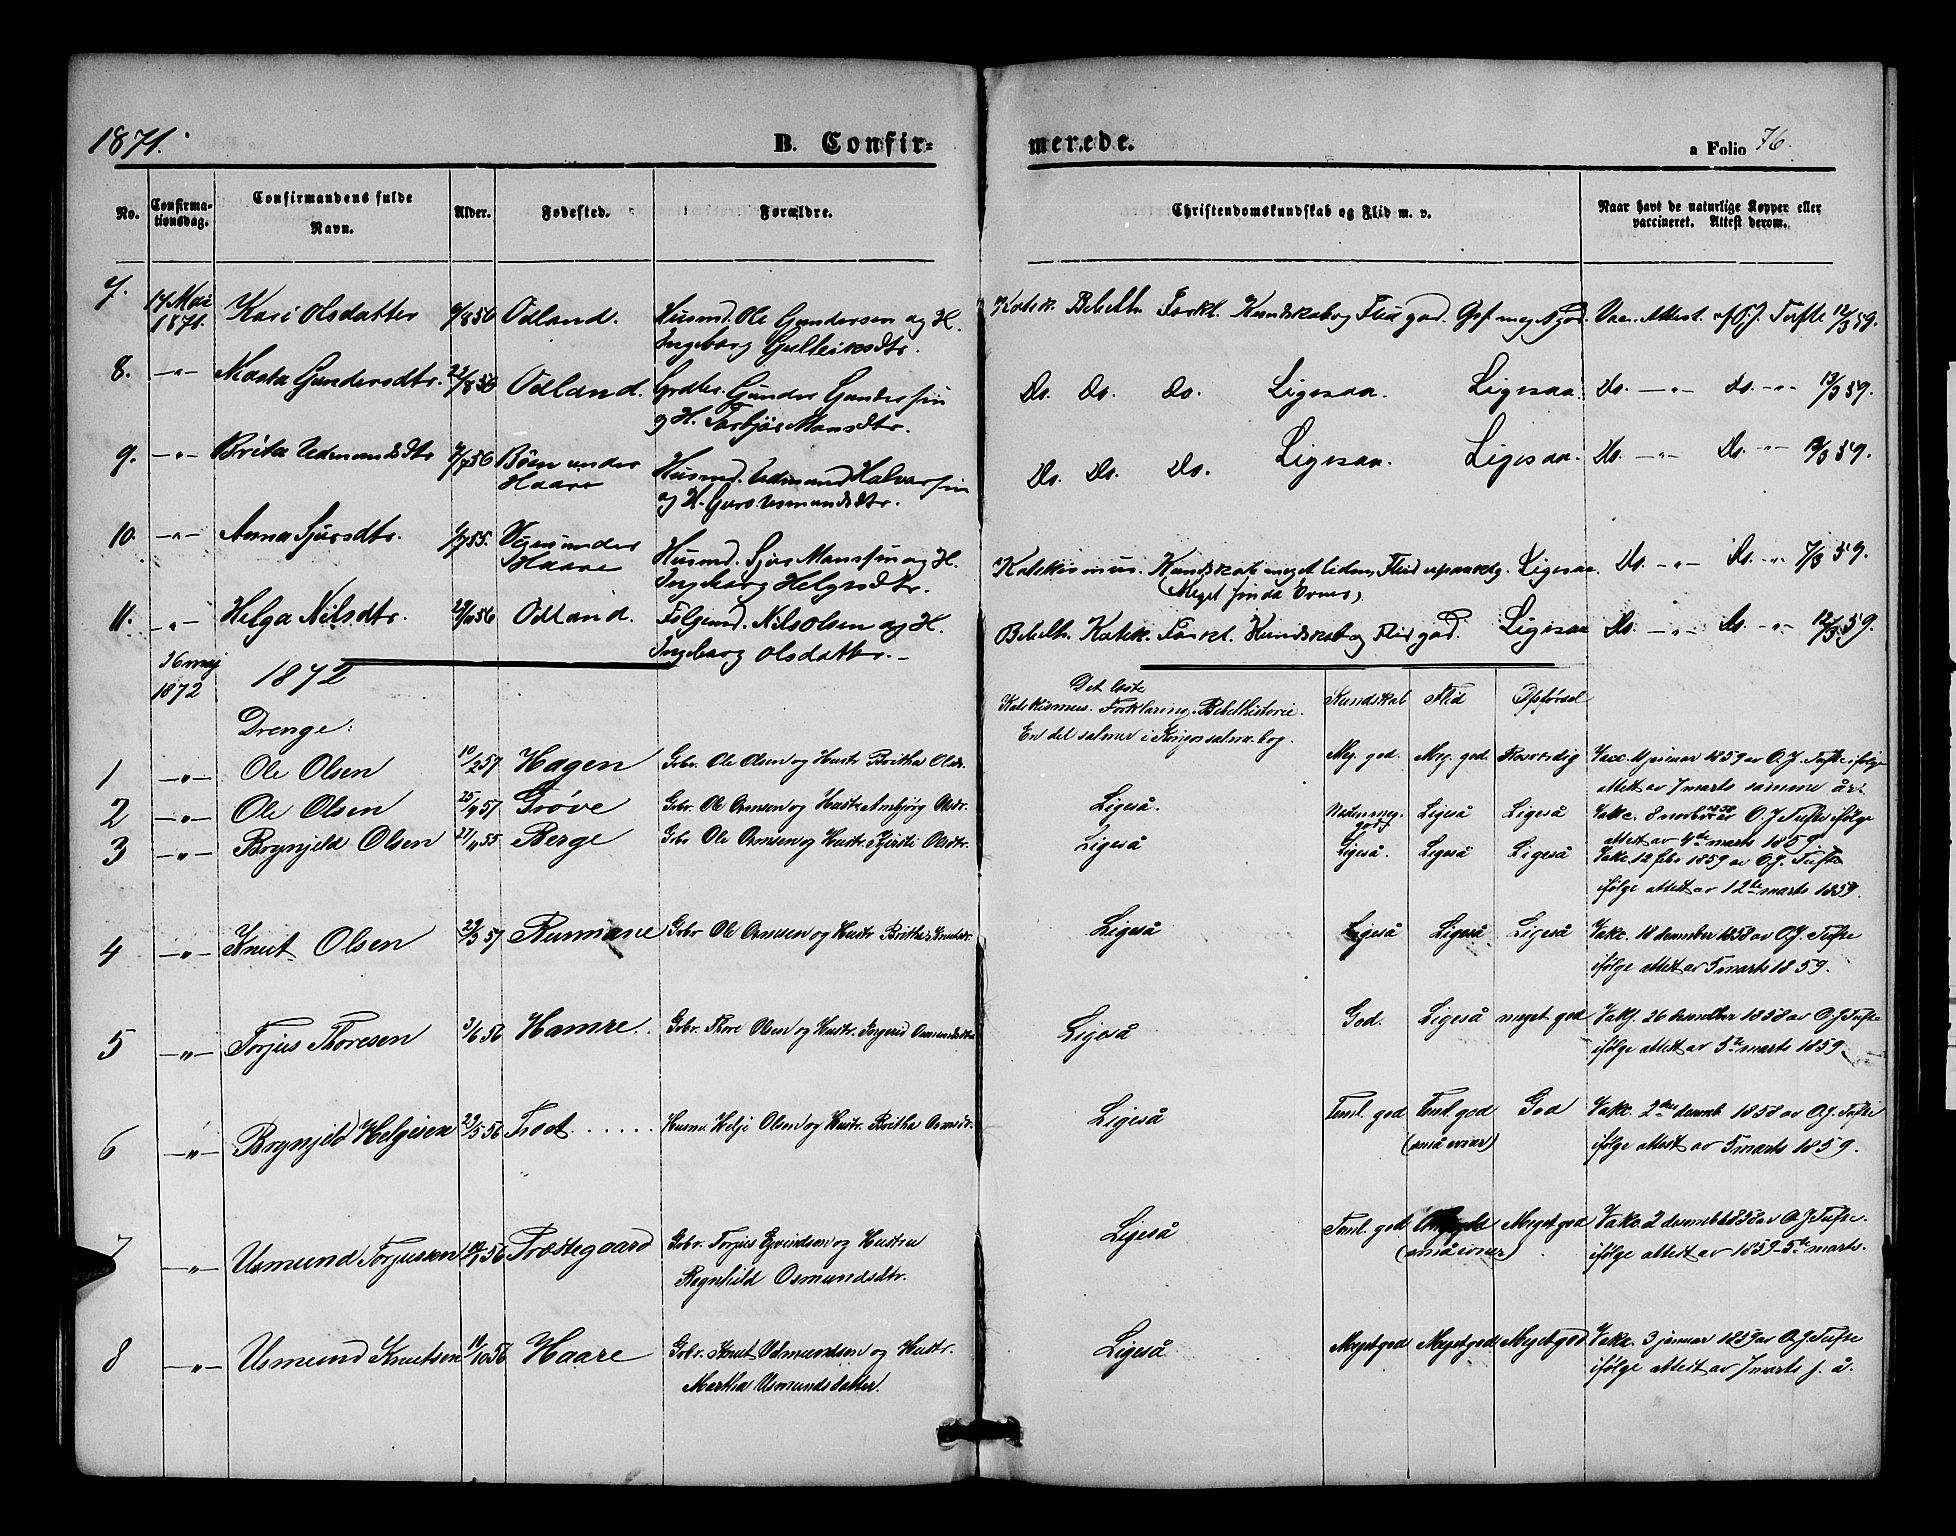 1871.
B. Confir-
merede.
a Folio 76.
No.
Confirmationsdag.
Confirmandens fulde Navn.
Alder.
Fødested.
Forældre.
Christendomskundskab og Flid m. v.
Naar havt de naturlige Kopper eller vaccineret. Attest derom.
7. 14 Mai 1871. Kari Olsdatter 9/8 56 Odland. Husmd. Ole Gundersen og H. Ingeborg Gulleiksdtr. Katek. Bibelh. Forkl. Kundskab og Flid god. Opf. meg. god. Vac. Attest. af O.J. Tufte 12/3 59.
8. -"- Marta Gundersdtr. 22/8 56 Odland. Gunder Gundersen og H. Torbjør Mansdtr. Do. Do. Do. Ligesaa. Ligesaa. Do. -"- Do. -"- 13/3 59.
9. -"- Brita Udmundsdtr 7/7 56 Bøen under Haare Husmd. Udmund Halvorsen og H. Guro Usmundsdtr. Do. Do. Do. Ligesaa. Ligesaa. Do. -"- Do. -"- 12/3 59.
10. -"- Anna Sjursdtr. 1/7 55. under Haare Husmd. Sjur Mansson og H. Ingeborg Helgesdtr. Katekismus. Kundskab meget liden, Flid Ligesaa. Do. -"- Do. -"- 7/3 59.
(Meget Evner).
11. -"- Helga Nilsdtr. 29/10 56 Odland. Følgemd. Nils Olsen og H. Ingeborg Olsdatter. Bibelh. Katek. Forkl. Kundskab og Flid god. Ligesaa Do. -"- Do. -"- 12/3 59.
26 maj 1872
1872
Drenge:
Det læste
Katekismus. Forklaring. Bibelhistorie.
En del salmer i Kingos salmebog.
Kundskab Flid Opførsel
1 -"- Ole Olsen 10/2 57 Hagen Gbr. Ole Olsen og Hustr. Britha Olsdr. Meg. god. Meg. god. Rosværdig Vakc. 11 januar 1859 av O.J. Tufte ifølge
attest av 7 marts samme år.
2 -"- Ole Olsen 25/4 57 Grøve Gbr. Ole Ormsen og Hustr. Ambjørg Olsdtr. Ligeså. Næsten meg. god Ligeså Ligeså Vakc. 8 novbr 1858 av O.J Tufte ifølge
attest av 4de marts 1859.
3 -"- Brynjeld Olsen 27/11 55 Berge Gbr Ole Ormsen og Hustr. Kjersti Olsdtr. Ligeså Ligeså. Ligeså Ligeså Vakc. 12 febr 1859 av O.J. Tufte
ifølge attest av 12te marts 1859.
4 -"- Knut Olsen 29/3 57 Rummane Gbr Ole Ormsen og Hustr Britha Knutsdr. Ligeså Ligeså Ligeså Ligeså Vakc. 18 desember 1858 av O.J. Tufte
ifølge attest av 5 marts 1859.
5 -"- Torjus Thoresen 3/6 56 Hamre. Gbr. Thore Olsen og Hustr. Ingerid Osmundsdtr Ligeså God. Ligeså meget god Vakc. 26 desember 1858 av O.J Tufte
ifølge attest av 5te marts 1859.
6 -"- Brynjeld Helgesen 22/5 56 Træet..... Husm. Helje Olsen og Hustr. Britha Ormsdr. Ligeså Teml. god Teml. god (små evner) God Vakc. 2den desemb 1858 av O.J. Tufte
ifølge attest av 5 marts 1859.
7 -"- Usmund Torjussen 56 Træstegaard Gbr. Torjus Eivindsen og Hustru
Ragnhild Osmundsdtr. Ligeså Teml. god (små evner) Meget god Vakc. 2 desemb 1858 av O.J Tufte.
ifølge attest av 1859 5te marts.
8 -"- Usmund Knutsen 19/10 56 Haare Gbr. Knut Udmundsen og Hustr.
Martha Usmundsdatter. Ligeså Meget god Meget god Meget god Vakc. 3 januar 1859 av O.J Tufte
ifølge attest av 7 marts s. å.